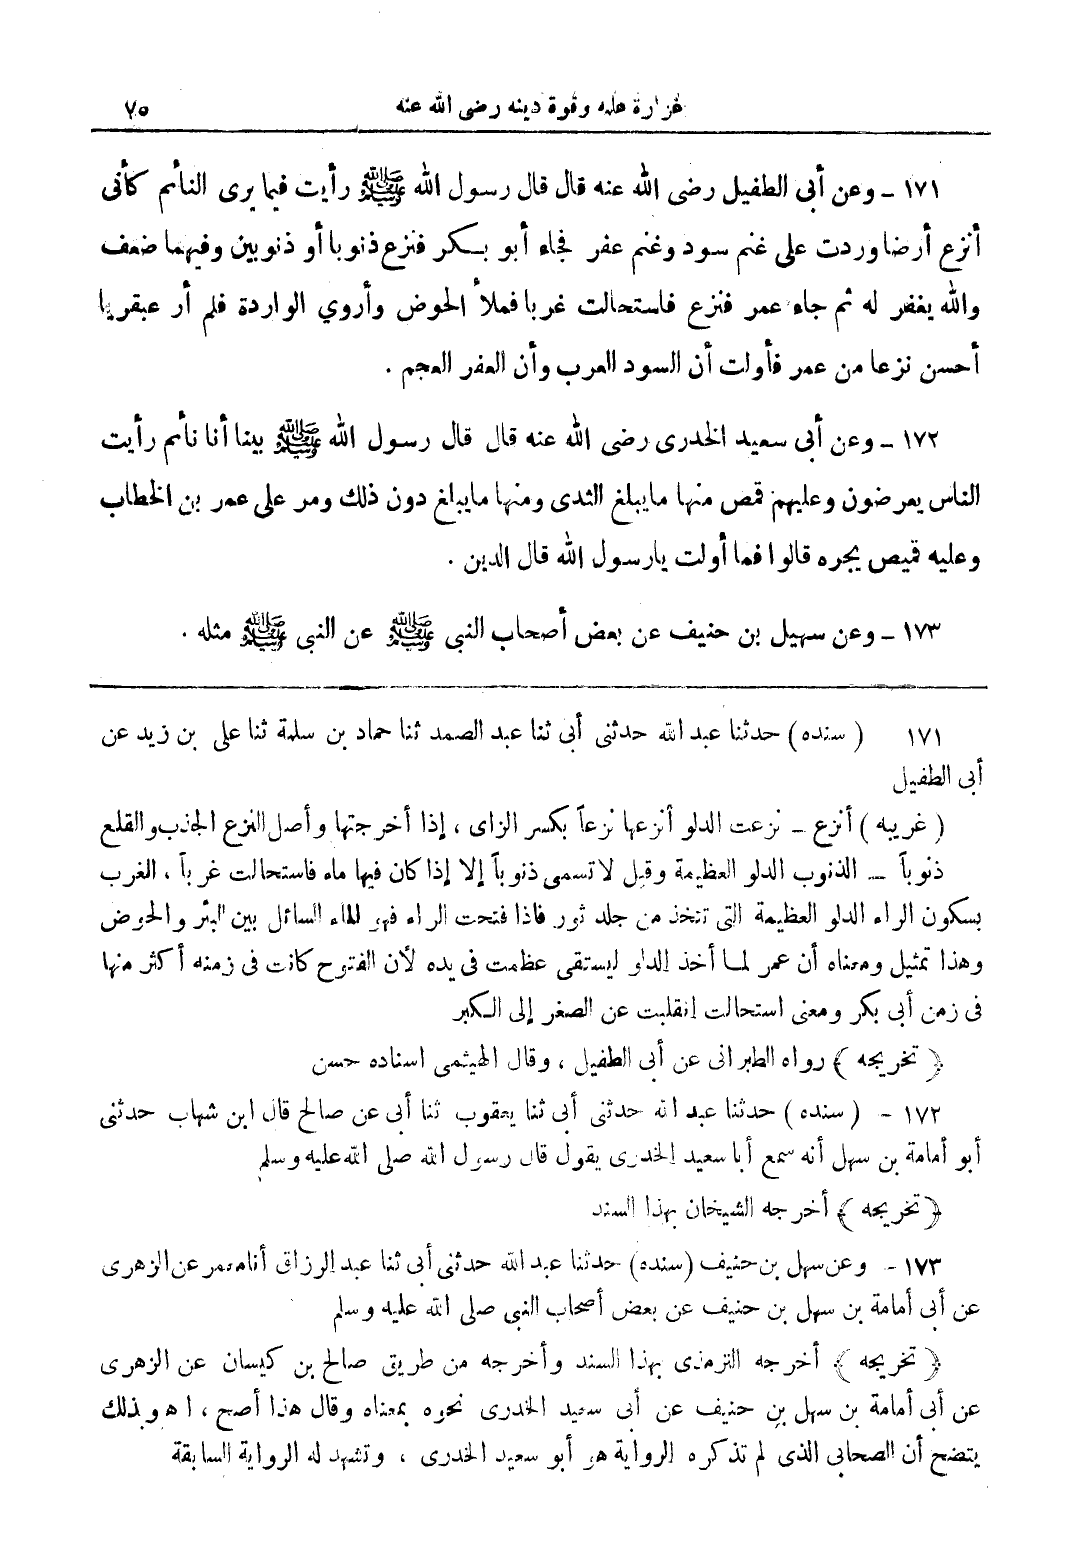 غزارة علمه وقوة دينه رضى الله عنه ٧٥
١٧١ ـ وعن أبى الطفيل رضى الله عنه قال قال رسول الله ﷺ رأيت فيما يرى النائم كأنى
أنزع أرضا وردت على غنم سود وغنم عفر فجاء أبو بكر فنزع ذنوبا أو ذنوبين وفيهما ضعف
والله يغفر له ثم جاء عمر فنزع فاستحالت غربا فملأ الحوض وأروي الواردة فلم أر عبقريا
أحسن نزعا من عمر فأولت أن السود العرب وأن العفر العجم .
١٧٢ ـ وعن أبى سعيد الخدرى رضى الله عنه قال قال رسول الله ﷺ بينا أنا نائم رأيت
الناس يعرضون وعليهم قمص منها مايبلغ الثدى ومنها مايبلغ دون ذلك ومر على عمر بن الخطاب
وعليه قميص يجره قالوا فما أولت يارسول الله قال الدين .
١٧٣ ـ وعن سهيل بن حنيف عن بعض أصحاب النبى ﷺ عن النبى ﷺ مثله .
١٧١ ( سنده ) حدثنا عبد الله حدثنى أبى ثنا عبد الصمد ثنا حماد بن سلمة ثنا على بن زيد عن
أبى الطفيل
( غريبه ) أنزع ـ نزعت الدلو أنزعها نزعاً بكسر الزاى ، إذا أخرجتها وأصل النزع الجذب والقلع
ذنوباً ـ الذنوب الدلو العظيمة وقيل لا تسمى ذنوباً إلا إذا كان فيها ماء فاستحالت غرباً ، الغرب
بسكون الراء الدلو العظيمة التى تتخذ من جلد ثور فاذا فتحت الراء فهو الماء السائل بين البئر والحوض
وهذا تمثيل ومعناه أن عمر لما أخذ الدلو ليستقى عظمت فى يده لأن الفتوح كانت فى زمنه أكثر منها
فى زمن أبى بكر ومعنى استحالت انقلبت عن الصغر إلى الكبر
﴿ تخريجه ﴾ رواه الطبرانى عن أبى الطفيل ، وقال الهيثمى اسناده حسن
١٧٢ - ( سنده ) حدثنا عبد الله حدثنى أبى ثنا يعقوب ثنا أبى عن صالح قال ابن شهاب حدثنى
أبو أمامة بن سهل أنه سمع أبا سعيد الخدرى يقول قال رسول الله صلى الله عليه وسلم
﴿ تخريجه ﴾ أخرجه الشيخان بهذا السند
١٧٣ - وعن سهل بن حنيف (سنده) حدثنا عبد الله حدثنى أبى ثنا عبد الرزاق أنا معمر عن الزهرى
عن أبى أمامة بن سهل بن حنيف عن بعض أصحاب النبى صلى الله عليه وسلم
﴿ تخريجه ﴾ أخرجه الترمذى بهذا السند وأخرجه من طريق صالح بن كيسان عن الزهرى
عن أبى أمامة بن سهل بن حنيف عن أبى سعيد الخدرى نحوه بمعناه وقال هذا أصح ، ا هـ وبذلك
يتضح أن الصحابى الذى لم تذكره الرواية هو أبو سعيد الخدرى ، وتشهد له الرواية السابقة